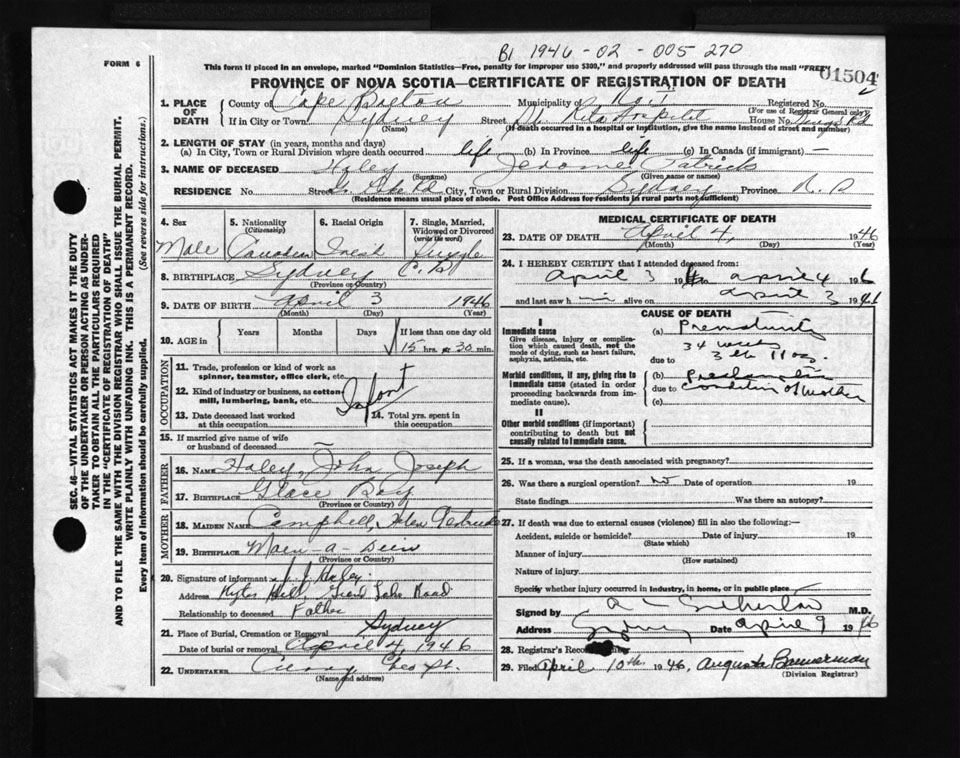 B1 1946-02-005270
FORM 6
This form if placed in an envelope, marked "Dominion Statistics—Free, penalty for improper use $300," and properly addressed will pass through the mail "FREE"
01504
PROVINCE OF NOVA SCOTIA—CERTIFICATE OF REGISTRATION OF DEATH
1. PLACE OF DEATH
County of Cape Breton Municipality of Registered No.
(For use of Registrar General only)
If in City or Town Sydney Street St. Rita Hospital House No. Kings Rd
(Name) (If death occurred in a hospital or institution, give the name instead of street and number)
2. LENGTH OF STAY (in years, months and days)
(a) In City, Town or Rural Division where death occurred life (b) In Province life (c) In Canada (if immigrant) —
3. NAME OF DECEASED Haley Jerome Patrick
(Surname) (Given name or names)
RESIDENCE No. Street Gr. Lake Rd City, Town or Rural Division Sydney Province
(Residence means usual place of abode. Post Office Address for residents in rural parts not sufficient)
4. Sex Male
5. Nationality (Citizenship) Canadian
6. Racial Origin Irish
7. Single, Married, Widowed or Divorced (write the word) Single
8. BIRTHPLACE Sydney C. B.
(Province or Country)
9. DATE OF BIRTH April 3 1946
(Month) (Day) (Year)
10. AGE in Years Months Days If less than one day old
15 hrs. or 30 min.
OCCUPATION
11. Trade, profession or kind of work as spinner, teamster, office clerk, etc.
12. Kind of industry or business, as cotton mill, lumbering, bank, etc. Infant
13. Date deceased last worked at this occupation
14. Total yrs. spent in this occupation
15. If married give name of wife or husband of deceased —
FATHER
16. NAME Haley, John Joseph
17. BIRTHPLACE Glace Bay
(Province or Country)
MOTHER
18. MAIDEN NAME Campbell, Helen Gertrude
19. BIRTHPLACE Main-a-Dieu
(Province or Country)
20. Signature of informant J. J. Haley
Address Kytes Hill, Grand Lake Road
Relationship to deceased Father
21. Place of Burial, Cremation or Removal Sydney
Date of burial or removal April 4, 1946
22. UNDERTAKER Curry
(Name and address)
MEDICAL CERTIFICATE OF DEATH
23. DATE OF DEATH April 4, 1946
(Month) (Day) (Year)
24. I HEREBY CERTIFY that I attended deceased from
April 3 19 to April 4 19
and last saw h im alive on April 3 1946
CAUSE OF DEATH
I
Immediate cause
Give disease, injury or complication which caused death, not the mode of dying, such as heart failure, asphyxia, asthenia, etc.
(a) Prematurity
34 weeks
due to 3 lb 11 oz.
Morbid conditions, if any, giving rise to immediate cause (stated in order proceeding backwards from immediate cause).
(b)
due to Condition of Mother
(c)
II
Other morbid conditions (if important) contributing to death but not causally related to immediate cause.
25. If a woman, was the death associated with pregnancy?
26. Was there a surgical operation? no Date of operation 19
State findings Was there an autopsy?
27. If death was due to external causes (violence) fill in also the following:—
Accident, suicide or homicide? Date of injury 19
(State which)
Manner of injury
(How sustained)
Nature of injury
Specify whether injury occurred in Industry, in home, or in public place
Signed by M.D.
Address Sydney Date April 9 1946
28. Registrar's Record Number
29. Filed April 10th 1946, Augusta Bannerman
(Division Registrar)
SEC. 46—VITAL STATISTICS ACT MAKES IT THE DUTY
OF THE UNDERTAKER OR PERSON ACTING AS UNDERTAKER TO OBTAIN ALL THE PARTICULARS REQUIRED
IN THE "CERTIFICATE OF REGISTRATION OF DEATH"
AND TO FILE THE SAME WITH THE DIVISION REGISTRAR WHO SHALL ISSUE THE BURIAL PERMIT.
WRITE PLAINLY WITH UNFADING INK. THIS IS A PERMANENT RECORD.
Every item of information should be carefully supplied. (See reverse side for instructions.)